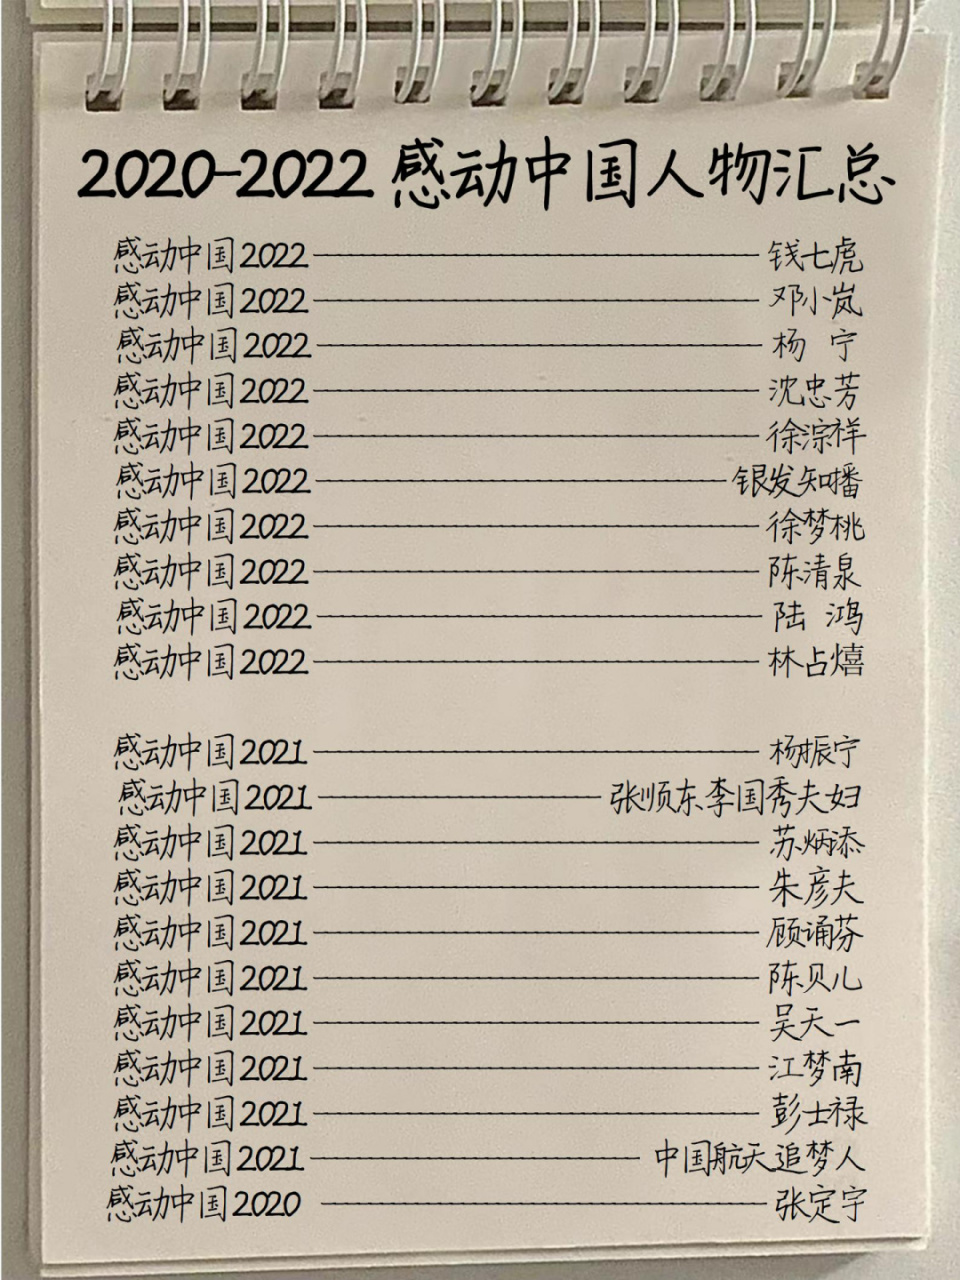 2020-2022 感动中国人物汇总
感动中国2022————钱七虎
感动中国2022————邓小岚
感动中国2022————杨 宁
感动中国2022————沈忠芳
感动中国2022————徐淙祥
感动中国2022————银发知播
感动中国2022————徐梦桃
感动中国2022————陈清泉
感动中国2022————陆 鸿
感动中国2022————林占熺
感动中国2021————杨振宁
感动中国2021————张顺东李国秀夫妇
感动中国2021————苏炳添
感动中国2021————朱彦夫
感动中国2021————顾诵芬
感动中国2021————陈贝儿
感动中国2021————吴天一
感动中国2021————江梦南
感动中国2021————彭士禄
感动中国2021————中国航天追梦人
感动中国2020 ————张定宇